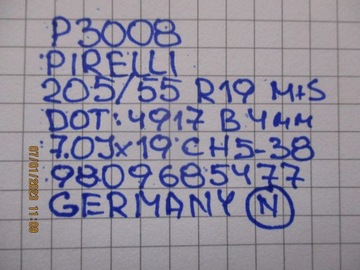 P3008
PIRELLI
205/55 R19 M+S
DOT: 4917 B 4мм
7.0J×19 CH5-38
9809685477
GERMANY N
07/01/2023 11:00